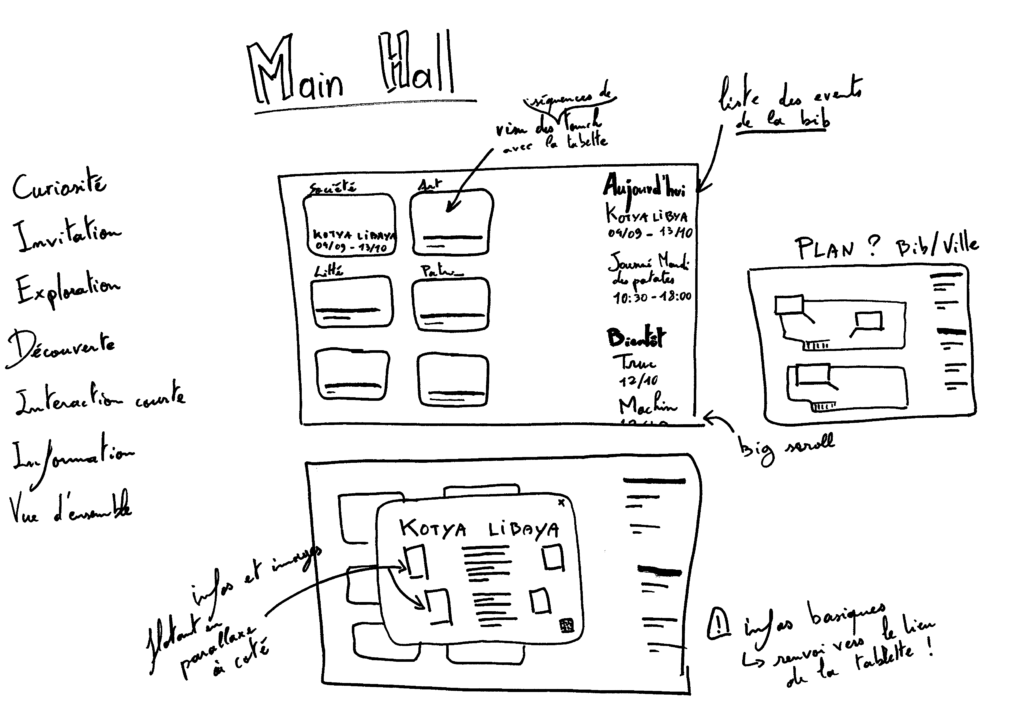 Main Hall
Curiosité
Invitation
Exploration
Découverte
Interaction courte
Information
Vue d'ensemble
séquences de
visu des touch
avec la tablette
liste des events
de la bib
Société
KOTYA LIBAYA
09/09 - 13/10
Art
Litté
Patri
Aujourd'hui
KOTYA LIBYA
09/09 - 13/10
des patates
10:30 - 18:00
Bientôt
Truc
12/10
Machin
big scroll
PLAN ? Bib/Ville
x
KOTYA LIBAYA
infos et images
flotant en
parallaxe
à coté
! infos basiques
↳ renvoi vers le lieu
de la tablette !